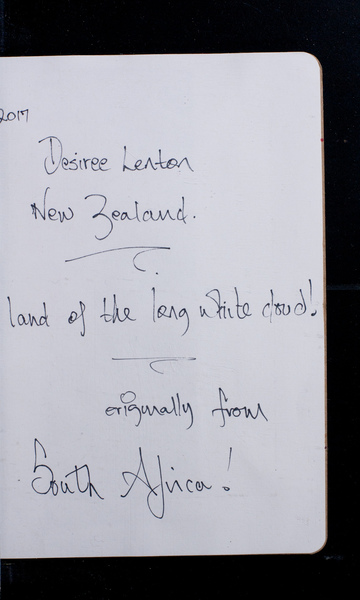 2017
Desiree Lenton
New Zealand.
land of the long white cloud!
originally from
South Africa!